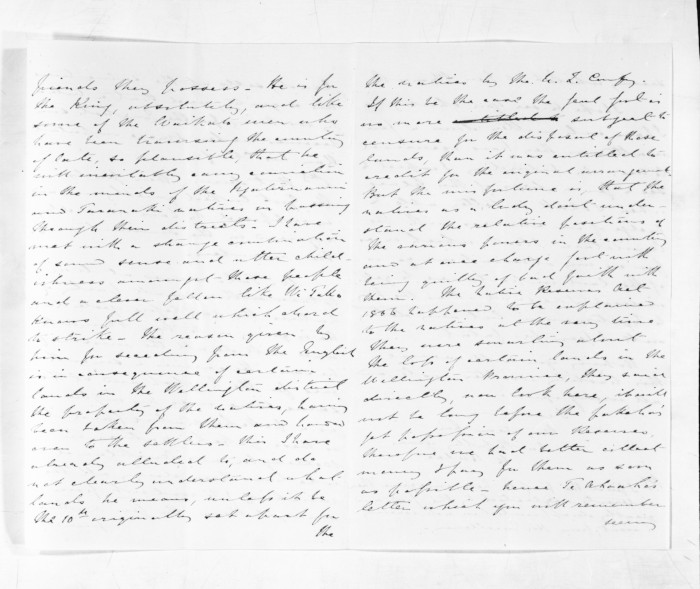 friends they possess - He is for
the King, absolutely, and like
some of the Waikato men who
have been traversing the country
of late, so plausible, that he
will inevitably carry conviction
in the minds of the Ngatiruanui
and Taranaki natives in passing
through their districts - I have
met with a strange combination
of sound sense and utter child-
ishness amongst these people
and a clever fellow like Wi Tako
knows full well which chord
to strike - The reason given by
him for seceding from the English
is in consequence of certain
lands in the Wellington district
the property of the natives, having
been taken from them and handed
over to the settlers - this I have
already alluded to, and do
not clearly understand what
lands he means, unless it be
the 10ths originally set apart for
the
the natives by the N. Z. Compy.
If this be the case the fault is
no more subject to
censure for the disposal of these
lands, than it was entitled to
credit for the original arrangement
But the misfortune is, that the
natives as a body dont under-
stand the relative positions of
the various powers in the country
and at once charge govt with
being guilty of bad faith with
them. The Native Reserves Act
1856 happened to be explained
to the natives at the very time
they were smarting about
the loss of certain lands in the
Wellington Province, they said
directly, now look here, it will
not be long before the pakeha's
get possession of our Reserves,
therefore we had better collect
money & pay for them as soon
as possible - hence Te
letter which you will remember
seeing